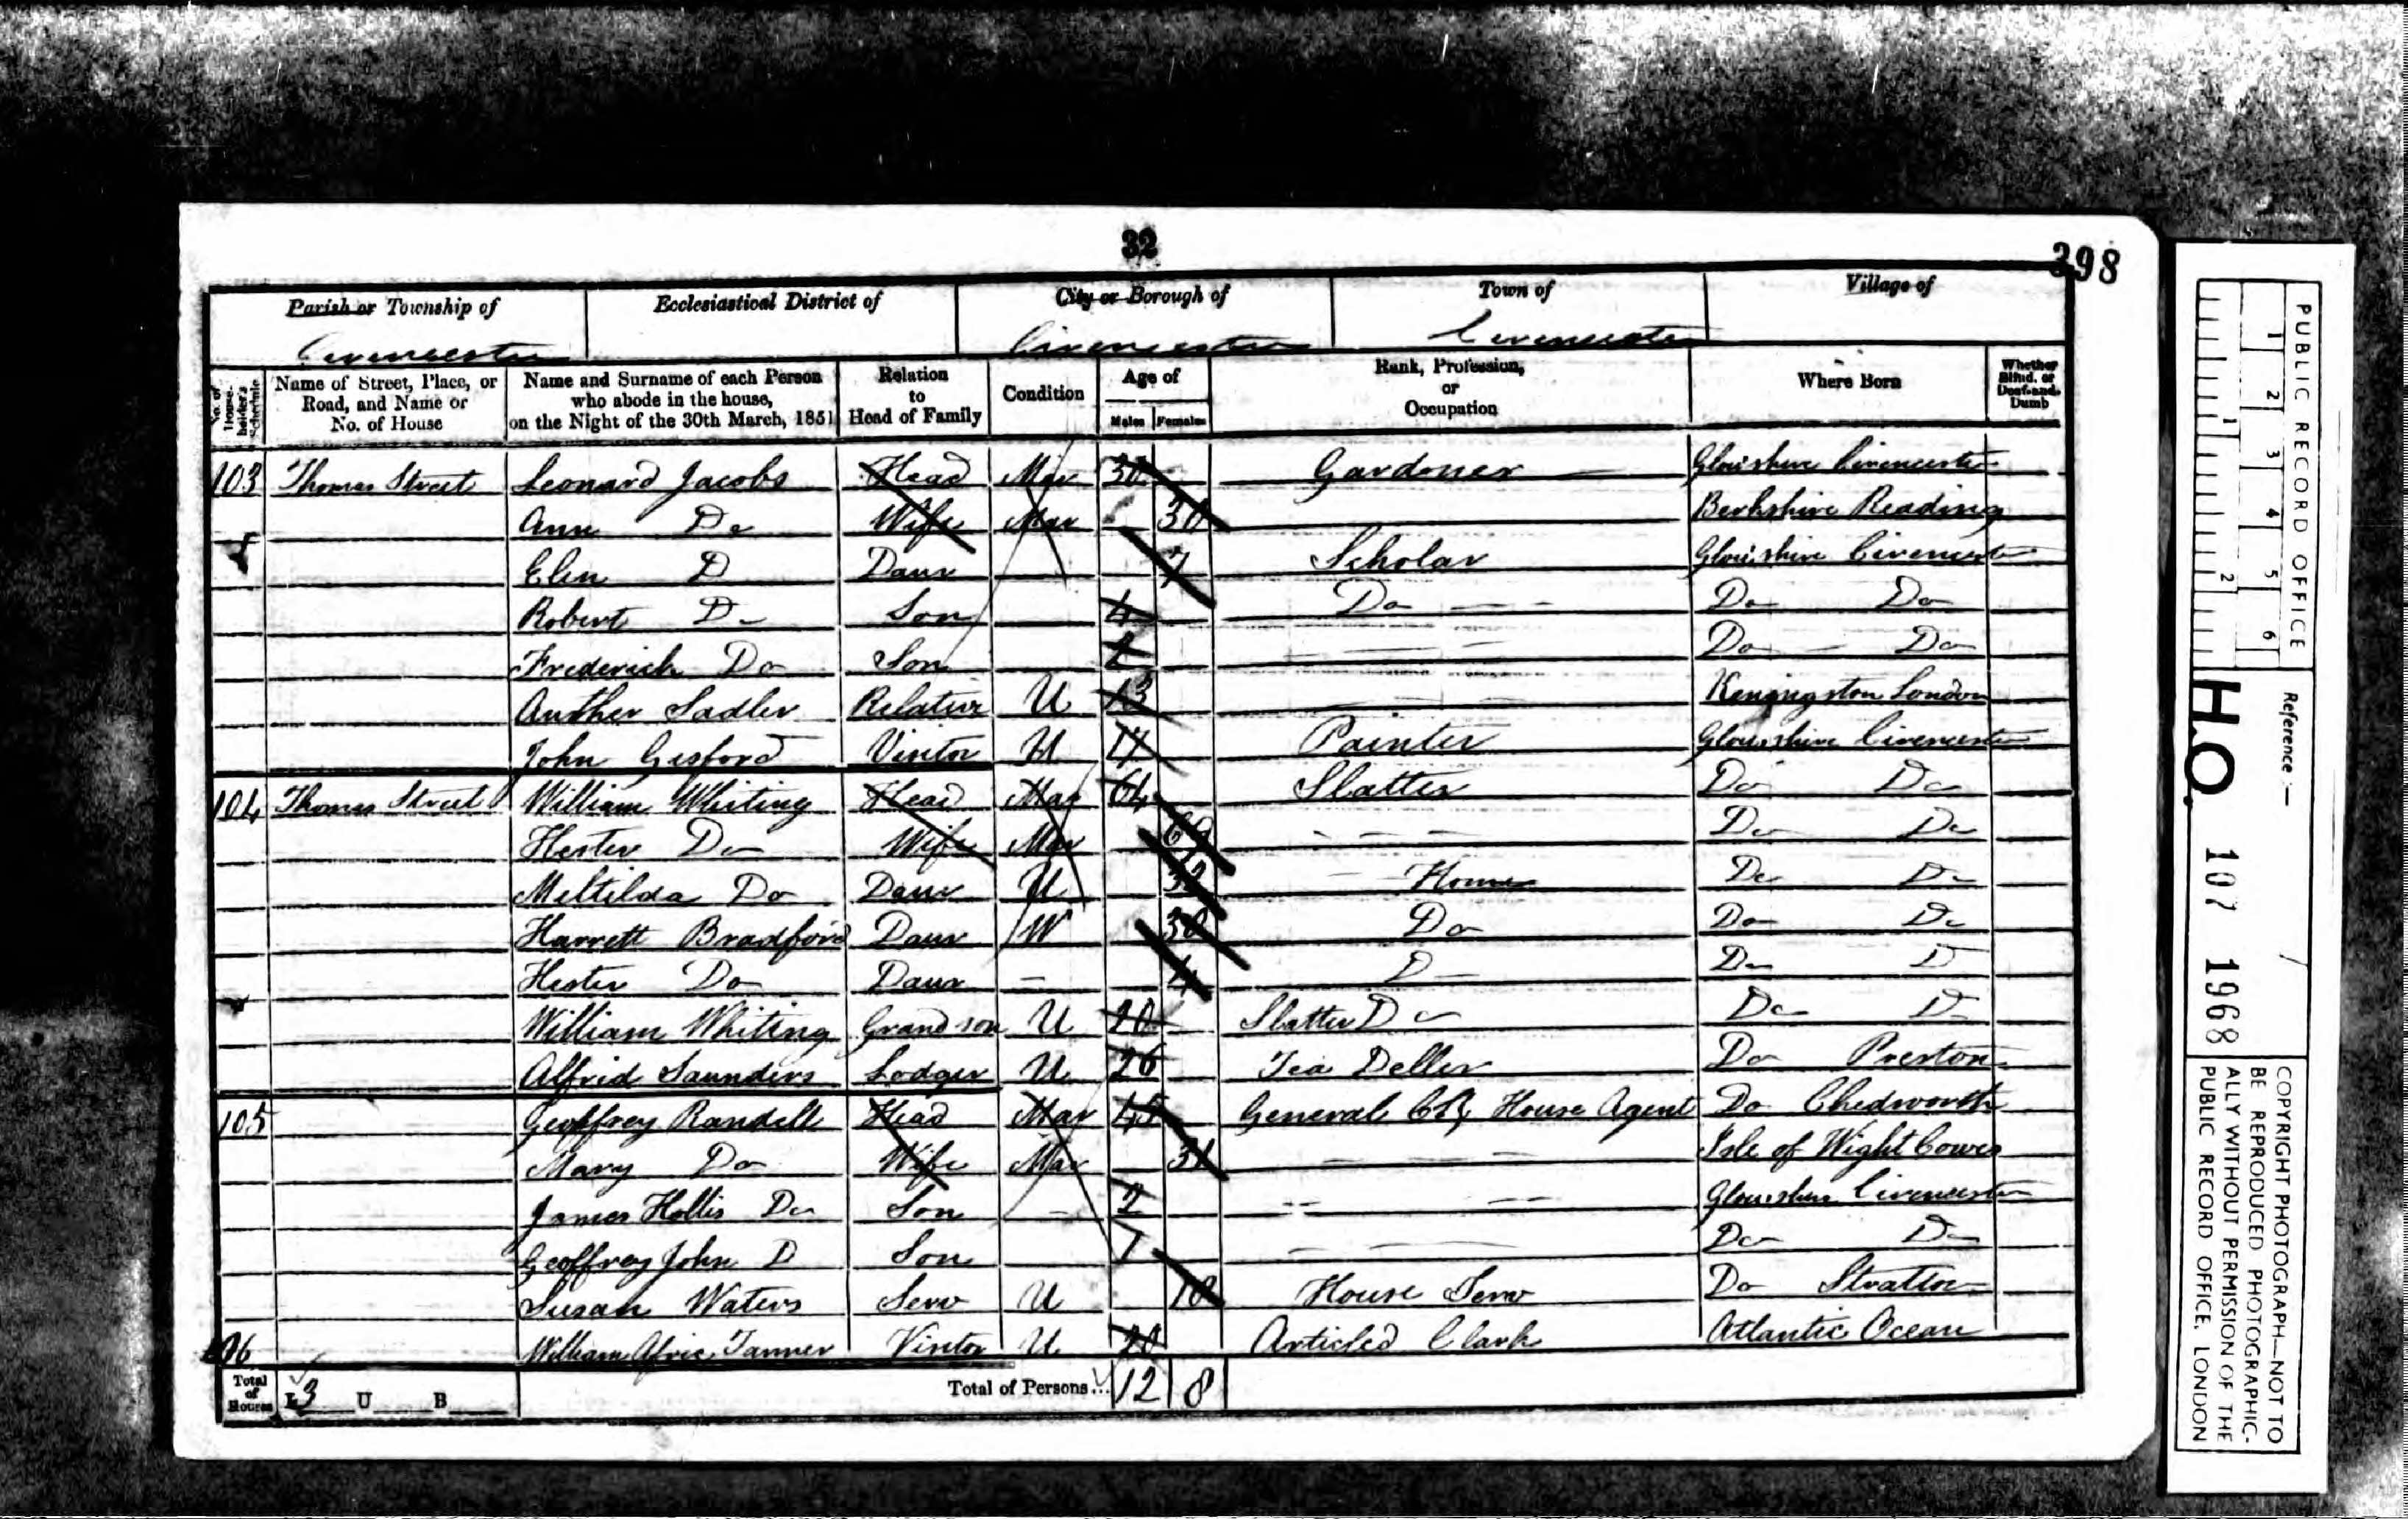 32
398
Parish or Township of
Ecclesiastical District of
City or Borough of
Town of
Village of
Cirencester Cirencester Cirencester
No. of House-holder's Schedule
Name of Street, Place, or Road, and Name or No. of House
Name and Surname of each Person who abode in the house, on the Night of the 30th March, 1851
Relation to Head of Family
Condition
Age of
Males Females
Rank, Profession, or Occupation
Where Born
Whether Blind, or Deaf-and-Dumb
103 Thomas Street Leonard Jacobs Head Mar Gardoner Glouishire Cirencester
Ann Do Wife Mar 30 Berkshire Reading
Elen D Daur 7 Scholar Glouishire Cirencester
Robert Do Son 4 Do Do Do
Frederick Do Son Do Do
Auther Sadler Relative U 13 Kensington London
John Gesford Visitor U 17 Painter Glousshire Cirencester
104 Thomas Street William Whiting Head Mar 64 Slatter Do Do
Hester Do Wife Mar Do Do
Meltilda Do Daur U 32 Home Do Do
Harrett Bradford Daur W 30 Do Do Do
Hester Do Daur - 4 D Do D
William Whiting Grand son U 20 Slatter Do Do D
Alfrid Saunders Lodger U 26 Tea Deller Do Preston
105 Geoffrey Randell Head Mar 45 General House Agent Do Chedworth
Mary Do Wife Mar 31 Isle of Wight Cowes
James Hollis Do Son - 2 Gloushire Cirencester
Geoffrey John D Son Do Do
Susan Waters Serv U 18 House Serv Do Stratton
106 William Tanner Visitor U 20 Articled Clark Atlantic Ocean
Total of Houses I 3 U B
Total of Persons... 12 8
PUBLIC RECORD OFFICE
1 2 3 4 5 6
1 2
Reference:-
H.O. 107 / 1968
COPYRIGHT PHOTOGRAPH—NOT TO
BE REPRODUCED PHOTOGRAPHIC-
ALLY WITHOUT PERMISSION OF THE
PUBLIC RECORD OFFICE, LONDON